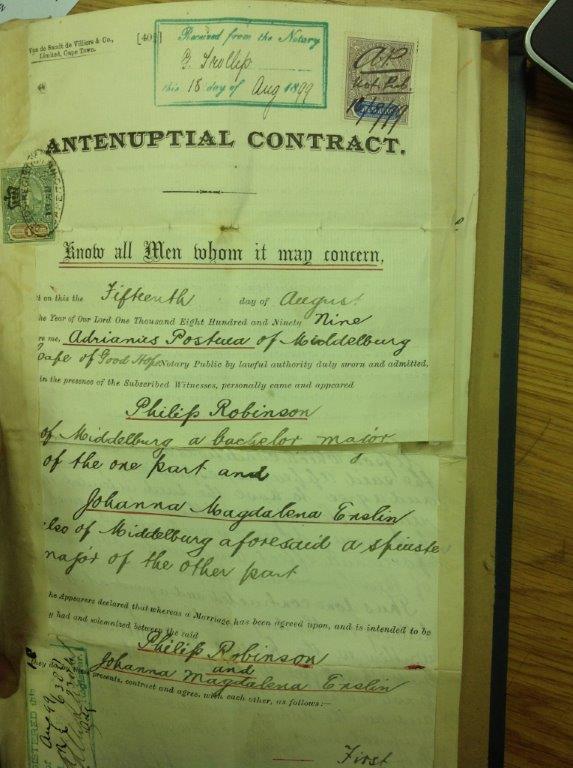 Van de Sandt de Villiers & Co.,
Limited, Cape Town.
[40
Received from the Notary
G. Trollip
this 18 day of Aug 1899
AP
Not. Pub.
ANTENUPTIAL CONTRACT.
Know all Men whom it may concern,
on this the Fifteenth day of August
he Year of Our Lord One Thousand Eight Hundred and Ninety Nine
re me, Adrianus Postma of Middelburg
Cape of Good Hope Notary Public by lawful authority duly sworn and admitted,
in the presence of the Subscribed Witnesses, personally came and appeared
Philip Robinson
of Middelburg a bachelor major
of the one part and
Johanna Magdalena Enslin
lso of Middelburg aforesaid a spinster
major of the other part
he Appearers declared that whereas a Marriage has been agreed upon, and is intended to be
y had and solemnized between the said
Philip Robinson
and
Johanna Magdalena Enslin
they do by these presents, contract and agree, with each other, as follows:—
First
ISTERED
of Aug 99